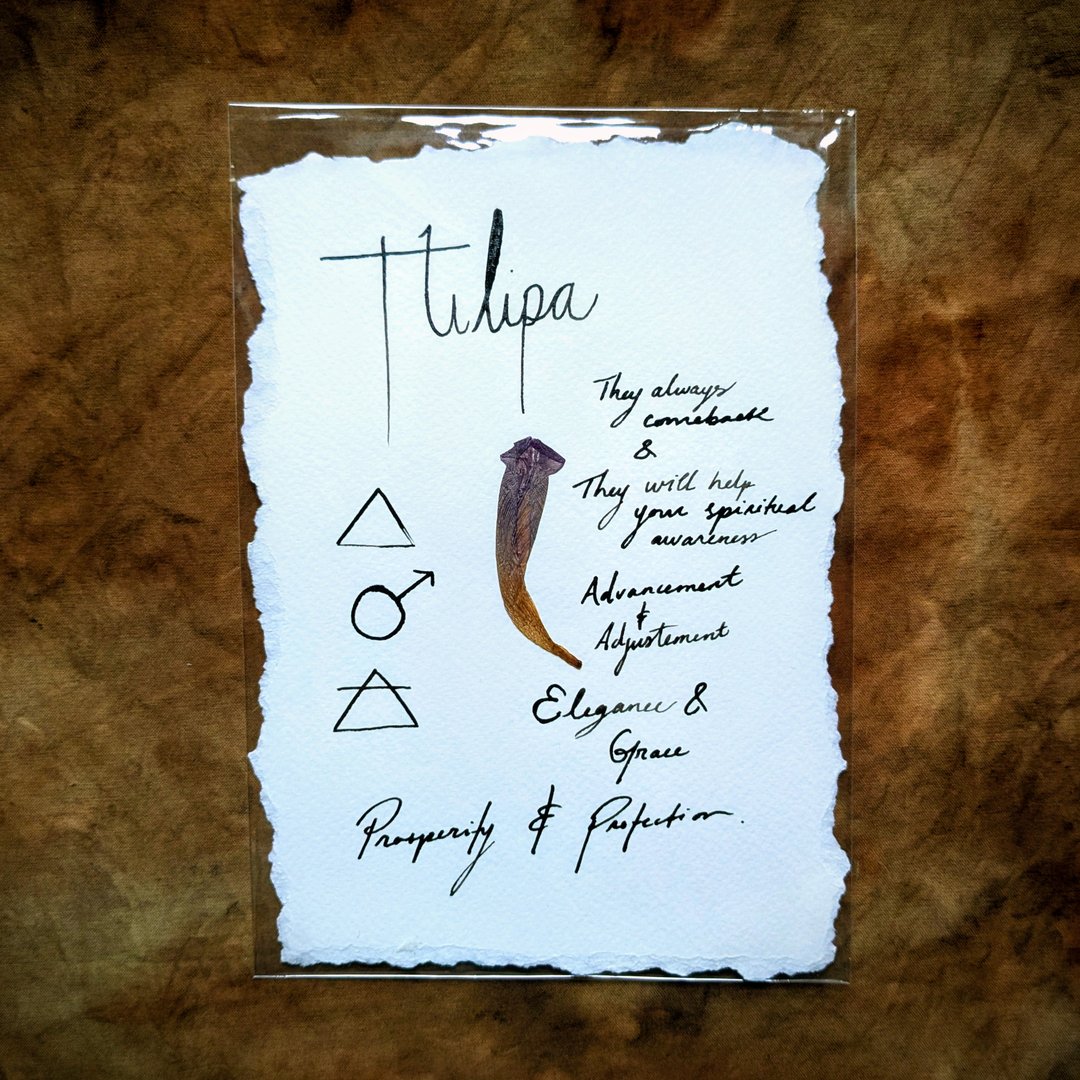 Tulipa
They always
comeback
&
They will help
your spiritual
awareness
Advancement
&
Adjustement
Elegance &
Grace
Prosperity & Protection.